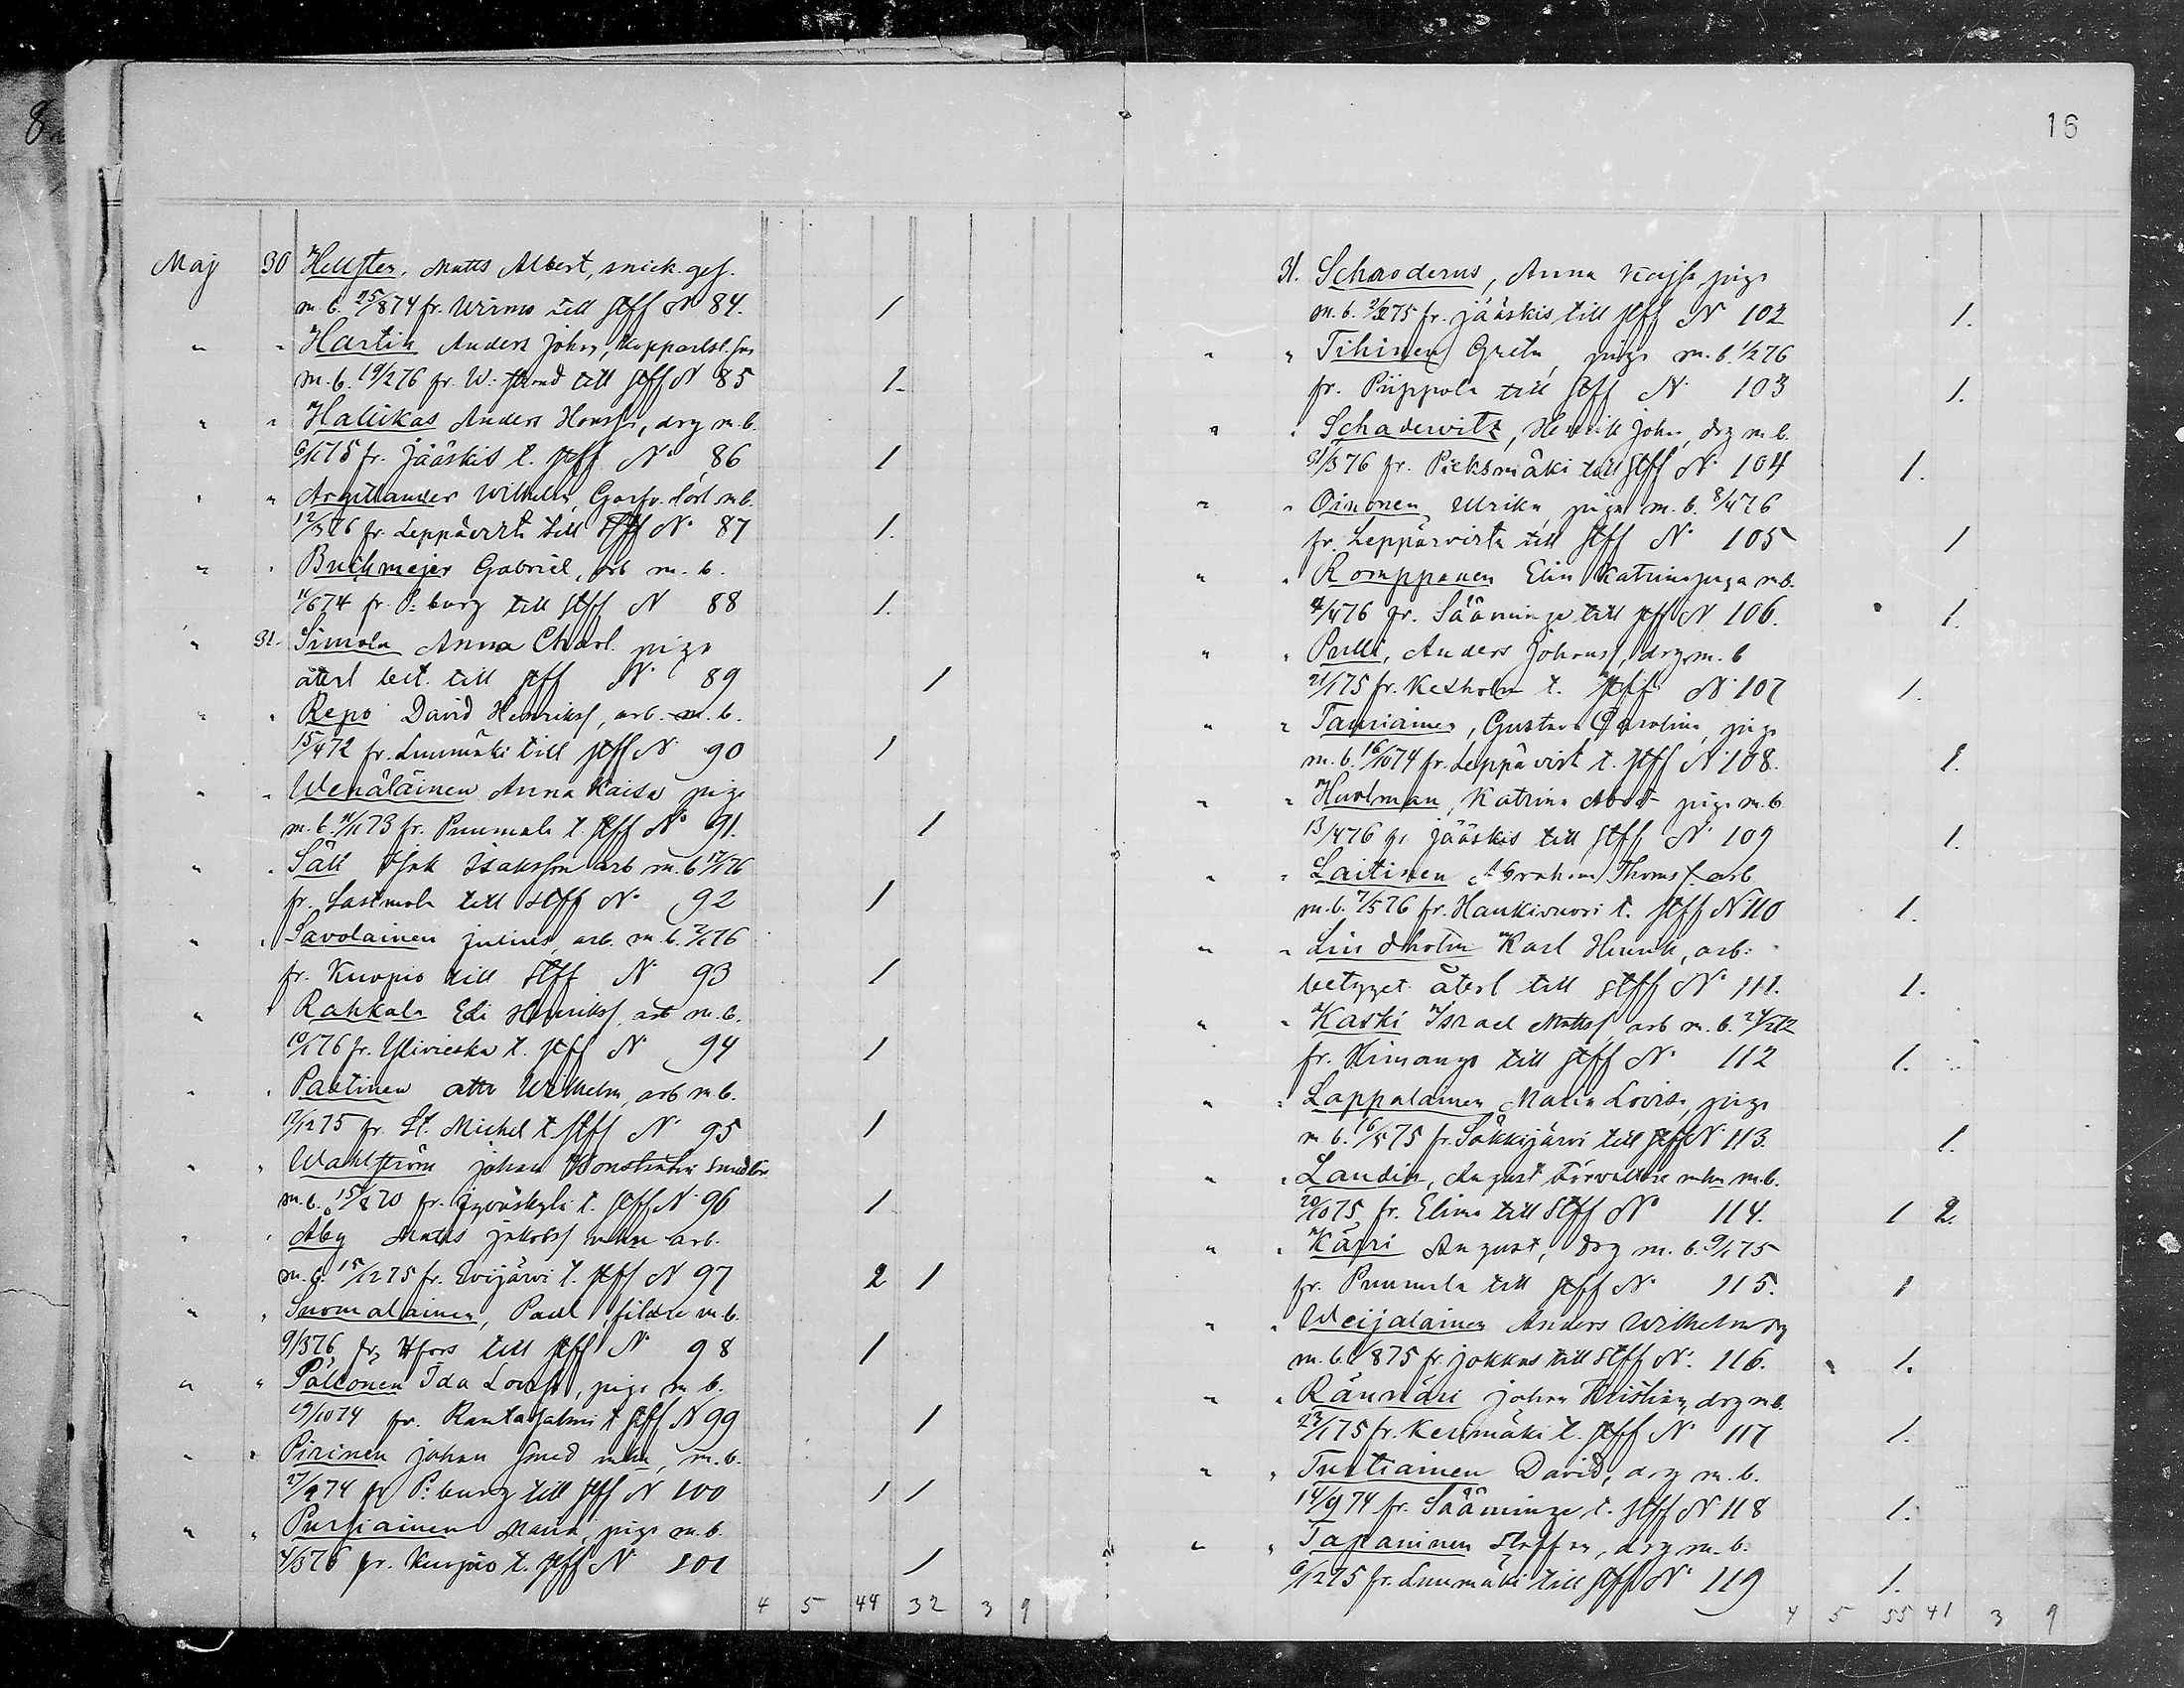 8
16
Maj 30 Hellsten, Matts Albert, snick. ges.
m. b. 25/8 74 fr. Wirmo till stff N 84. 1
" " Hartin Anders Johan,
m. b. 19/2 76 fr. W:strand till stff N 85 1.
" " Hallikas Anders Hanss, drg m. b.
6/1 75 fr. Jääskis t. stff N° 86 1
" " Argillander Wilhelm, m b.
12/3 76 fr. Leppävirta till stff N° 87 1.
" " Buchmejer Gabriel, arb m. b.
11/6 74 fr. P:burg till stff N 88 1.
" 31. Simola Anna Charl. piga
återl bet. till stff N° 89 1
" " Repo David Henrikss, arb. m. b.
15/4 72 fr. Luumäki till stff N° 90 1
" " Wenäläinen Anna Kaisa piga
m. b. 11/1 73 fr. Puumala t. stff N° 91. 1
" " Säll Isak Isaksson arb m. b 17/1 76
fr. Lastmola till stff N° 92 1
" " Savolainen Julius, arb. m. b. 2/1 76
fr. Kuopio till stff N° 93 1
" " Rahkala Eli Henrikss, arb m. b.
10/1 76 fr. Ylivieska t. stff N° 94 1
" " Partinen Otto Wilhelm, arb m b.
17/12 75 fr. St. Michel t. stff N° 95 1
" " Wahlström Johan Konstantin
m. b. 15/8 70 fr. Jyväskylä t. stff N° 96 1
" " Åby Matts Jakobss mhu arb.
m. b. 15/12 75 fr. Evijärvi t. stff N 97 2 1
" " Suomalainen, Paul, filare m. b.
9/3 76 fr. Hfors till stff N° 98 1
" " Pälconen Ida Lovisa, piga m b.
19/10 74 fr. Rantasalmi t stff N 99 1
" " Pirinen Johan smed mhu, m. b.
27/2 74 fr P:burg till stff N 100 1 1
" " Pursiainen Maria, piga m. b.
4/5 76 fr. Kuopio t. stff N° 101 1
4 5 44 32 3 9
31. Schroderus, Anna Kajsa piga
m. b. 2/2 75 fr. Jääskis till stff N° 102 1.
" " Tihinen Greta, piga m. b. 1/2 76
fr. Piippola till stff N° 103 1.
" " Schadewitz, Henrik Johan, drg m b.
31/3 76 fr. Pieksmäki till stff N° 104 1.
" " Oinonen Ulrika, piga m. b. 8/4 76
fr. Leppävirta till stff N° 105 1
" " Romppanen Elin Katrina piga m b.
4/4 76 fr. Sääminge till stff N 106. 1.
" " Pulli, Anders Johanss, drg m. b
21/1 75 fr. Kexholm t. stff N° 107 1.
" " Tauriainen, Gustava Carolina, piga
m. b. 16/10 74 fr. Leppävirt t. stff N° 108. 1.
" " Hurlman, Katrina piga m. b.
13/4 76 fr. Jääskis till stff N° 109 1.
" " Laitinen Abraham Thomss. arb
m. b. 7/5 76 fr. Haukivuori t. stff N° 110 1.
" " Lindholm Karl Henrik, arb:
betyget återl till stff N° 111. 1.
" " Kaski Israel Mattss, arb m. b. 24/2 72
fr. Himango till stff N° 112 1.
" " Lappalainen Maria Lovisa, piga
m b. 16/5 75 fr. Säkkijärvi till stff N° 113. 1.
" " Laudin, August förvaltare mhu m. b.
20/10 75 fr. Elimä till stff N° 114. 1 2.
" " Kärri August, drg m. b. 9/1 75
fr. Puumala till stff N° 115. 1
" " Weijalainen Anders Wilhelm drg
m. b. 1/8 75 fr. Jokkas till stff N°. 116. 1.
" " Rännäri Johan Kristian, drg m b.
23/1 75 fr. Kerimäki t. stff N° 117 1.
" " Turtiainen David, drg m. b.
14/9 74 fr. Sääminge t. stff N 118 1.
" " Tapaninen Staffan, drg m. b.
6/12 75 fr. Luumäki till stff N° 119 1.
4 5 55 41 3 9